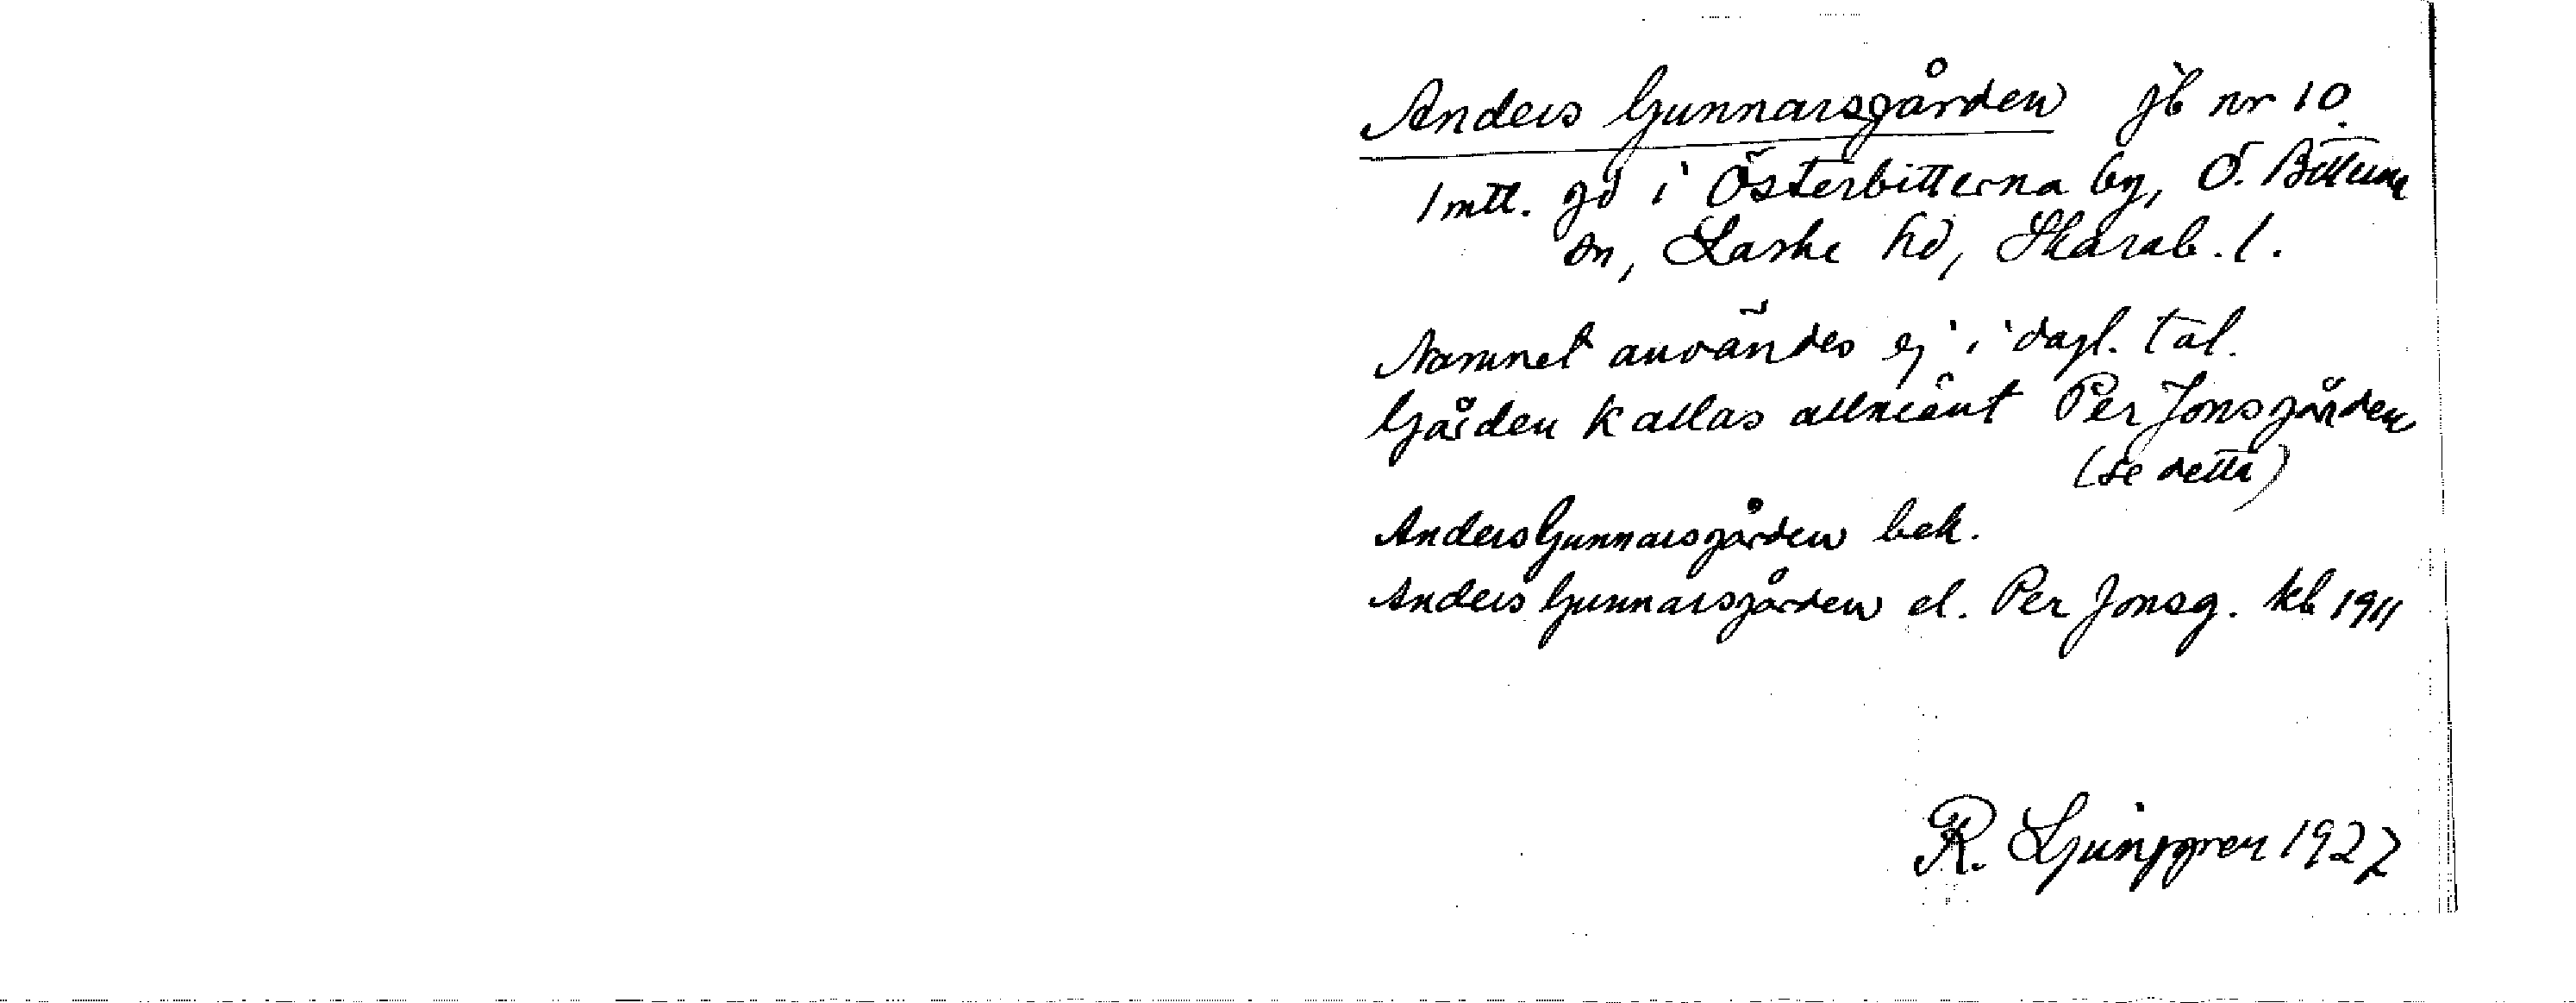 Anders Gunnarsgården jb nr 10.
1 mtl. gd i Österbitterna by, Ö. Bitterna
sn, Laske hd, Skarab. l.
Namnet användes ej i dagl. tal.
Gården kallas allmänt Per Jonsgården
(se detta)
Anders Gunnarsgården bek.
Anders Gunnarsgården el. Per Jonsg. kb 1911
R. Ljunggren 1927